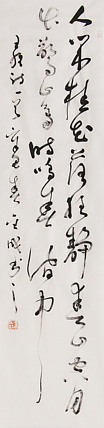 人闲桂花落夜静春山空月
出惊山鸟时鸣春涧中
诗一首
书